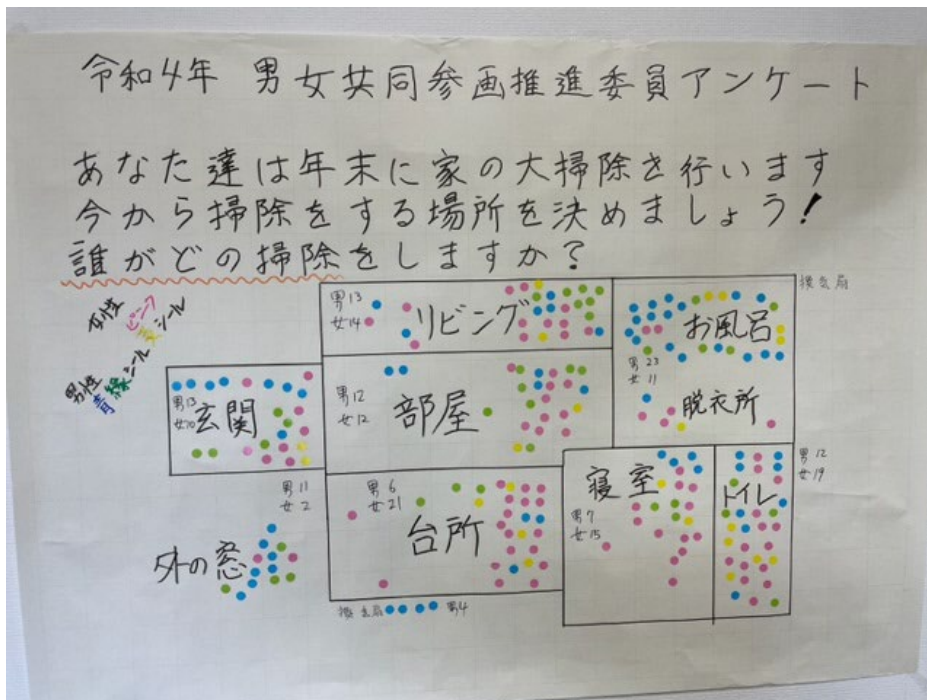 令和4年 男女共同参画推進委員アンケート
あなた達は年末に家の大掃除を行います
今から掃除をする場所を決めましょう!
誰がどの掃除をしますか?
女性 ピンク 黄シール
男性 青緑シール
男13
女14
リビング
換気扇
お風呂
男23
女11
脱衣所
男13
女10
玄関
男12
女12
部屋
男11
女2
外の窓
男6
女21
台所
換気扇 男4
寝室
男7
女15
トイレ
男12
女19